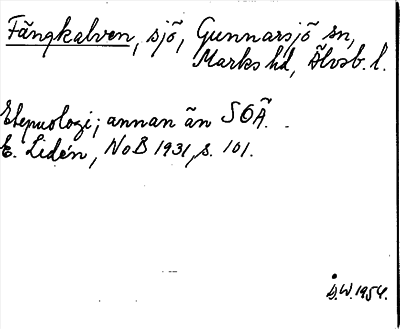 Fängkalven, sjö, Gunnarsjö sn,
Marks hd, Älvsb. l.
Etymologi; annan än SOÄ.
E. Lidén, NoB 1931, s. 101.
Å.W. 1954.